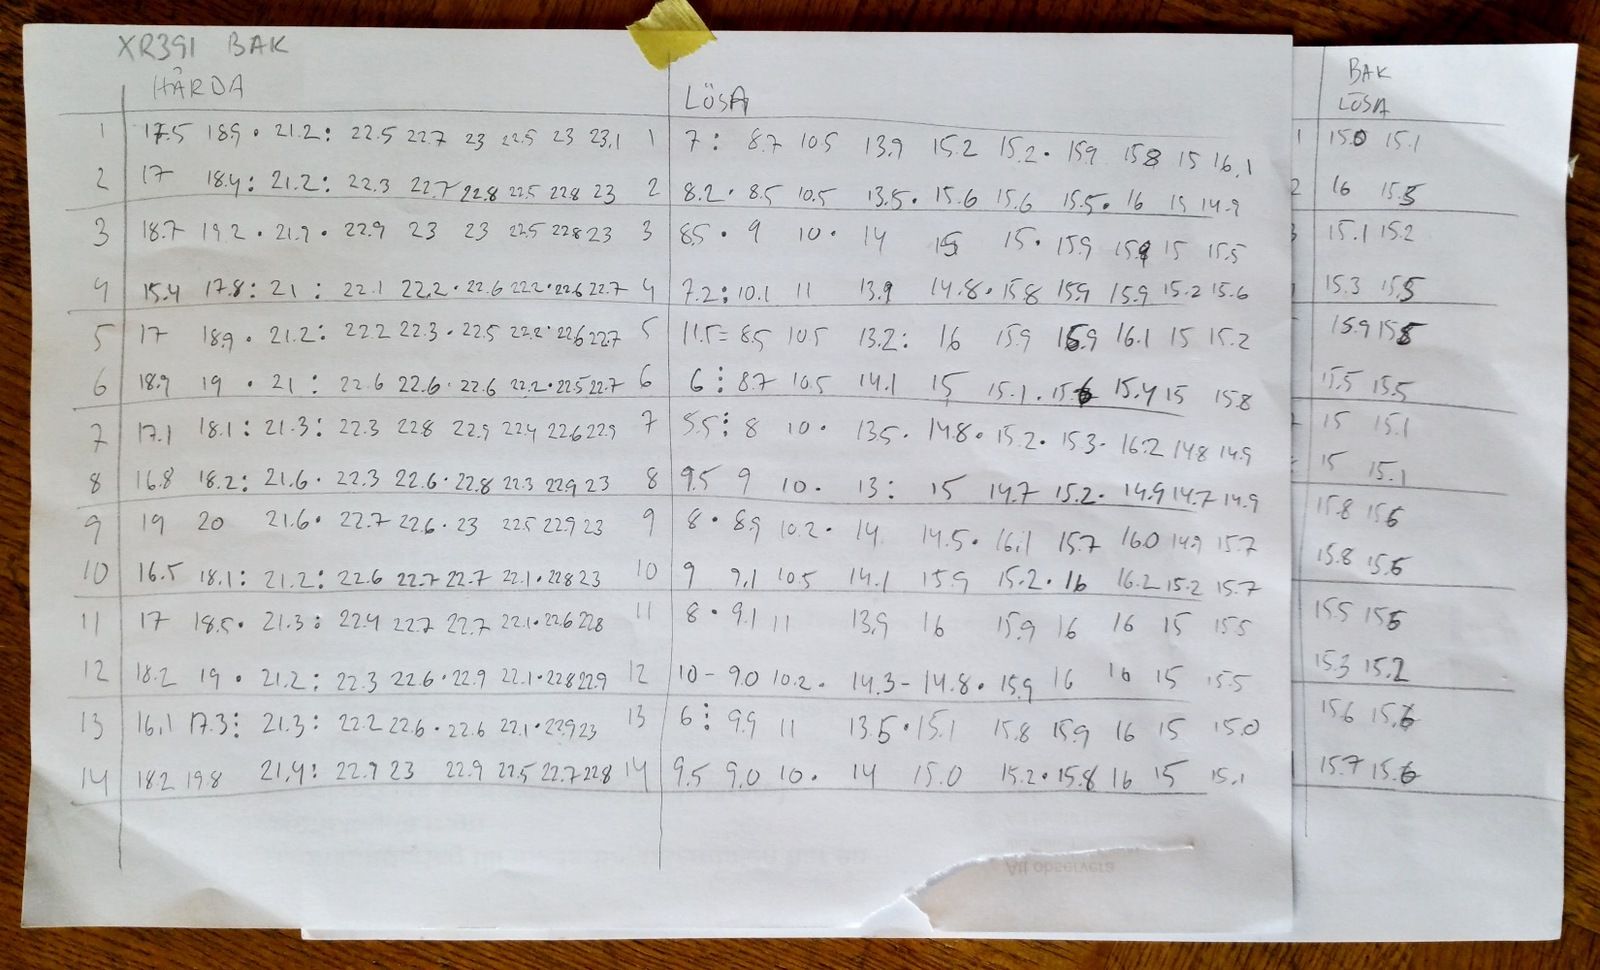 XR391 BAK
HÅRDA LÖSA BAK
LÖSA
1 17.5 18.9 • 21.2: 22.5 22.7 23 22.5 23 23.1 1 7: 8.7 10.5 13.9 15.2 15.2 • 15.9 15.8 15 16.1 1 15.0 15.1
2 17 18.4: 21.2: 22.3 22.7 22.8 22.5 22.8 23 2 8.2 • 8.5 10.5 13.5 • 15.6 15.6 15.5 • 16 15 14.9 2 16 15.5
3 18.7 19.2 • 21.9 • 22.9 23 23 22.5 22.8 23 3 8.5 • 9 10 • 14 15 15 • 15.9 15.9 15 15.5 3 15.1 15.2
4 15.4 17.8: 21: 22.1 22.2 • 22.6 22.2 • 22.6 22.7 4 7.2: 10.1 11 13.9 14.8 • 15.8 15.9 15.9 15.2 15.6 15.3 15.5
5 17 18.9 • 21.2: 22.2 22.3 • 22.5 22.2 • 22.6 22.7 5 11.5= 8.5 10.5 13.2: 16 15.9 15.9 16.1 15 15.2 15.9 15.8
6 18.9 19 • 21: 22.6 22.6 • 22.6 22.2 • 22.5 22.7 6 6: 8.7 10.5 14.1 15 15.1 • 15.6 15.4 15 15.8 15.5 15.5
7 17.1 18.1: 21.3: 22.3 22.8 22.9 22.4 22.6 22.9 7 5.5: 8 10 • 13.5 • 14.8 • 15.2 • 15.3 • 16.2 14.8 14.9 15 15.1
8 16.8 18.2: 21.6 • 22.3 22.6 • 22.8 22.3 22.9 23 8 9.5 9 10 • 13: 15 14.7 15.2 • 14.9 14.7 14.9 15 15.1
9 19 20 21.6 • 22.7 22.6 • 23 22.5 22.9 23 9 8 • 8.9 10.2 • 14 14.5 • 16.1 15.7 16.0 14.9 15.7 15.8 15.6
10 16.5 18.1: 21.2: 22.6 22.7 22.7 22.1 • 22.8 23 10 9 9.1 10.5 14.1 15.9 15.2 • 16 16.2 15.2 15.7 15.8 15.6
11 17 18.5 • 21.3: 22.4 22.7 22.7 22.1 • 22.6 22.8 11 8 • 9.1 11 13.9 16 15.9 16 16 15 15.5 15.5 15.6
12 18.2 19 • 21.2: 22.3 22.6 • 22.9 22.1 • 22.8 22.9 12 10 - 9.0 10.2 • 14.3 - 14.8 • 15.9 16 16 15 15.5 15.3 15.2
13 16.1 17.3: 21.3: 22.2 22.6 • 22.6 22.1 • 22.9 23 13 6: 9.9 11 13.5 • 15.1 15.8 15.9 16 15 15.0 15.6 15.6
14 18.2 19.8 21.4: 22.9 23 22.9 22.5 22.7 22.8 14 9.5 9.0 10 • 14 15.0 15.2 • 15.8 16 15 15.1 15.7 15.6